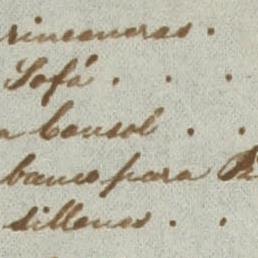 rinconeras .
Sofá . . .
a Consol . .
banco para
sillones . .